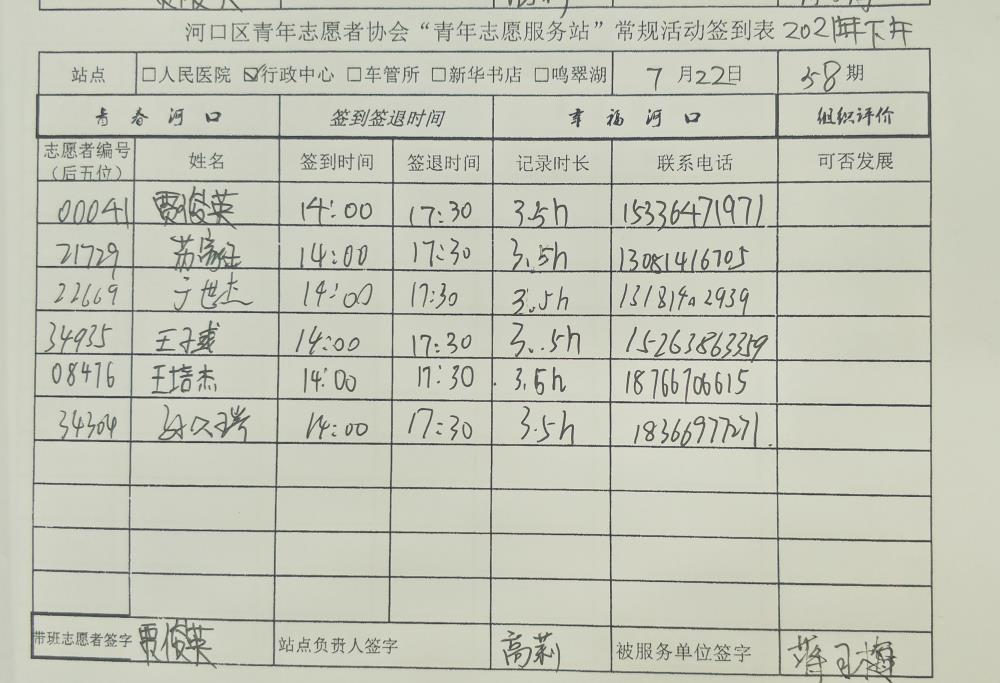 河口区青年志愿者协会“青年志愿服务站”常规活动签到表 2021年下午
站点 □人民医院 ☑行政中心 □车管所 □新华书店 □鸣翠湖 7月22日 58期
青春河口 签到签退时间 幸福河口 组织评价
志愿者编号（后五位） 姓名 签到时间 签退时间 记录时长 联系电话 可否发展
00041 贾俊英 14:00 17:30 3.5h 15336471971
21729 14:00 17:30 3.5h 13081416705
22669 于世杰 14:00 17:30 3.5h
34935 14:00 17:30 3.5h 15263863359
08476 王培杰 14:00 17:30 3.5h 18766706615
34304 14:00 17:30 3.5h 18366977271
带班志愿者签字 贾俊英 站点负责人签字 高莉 被服务单位签字